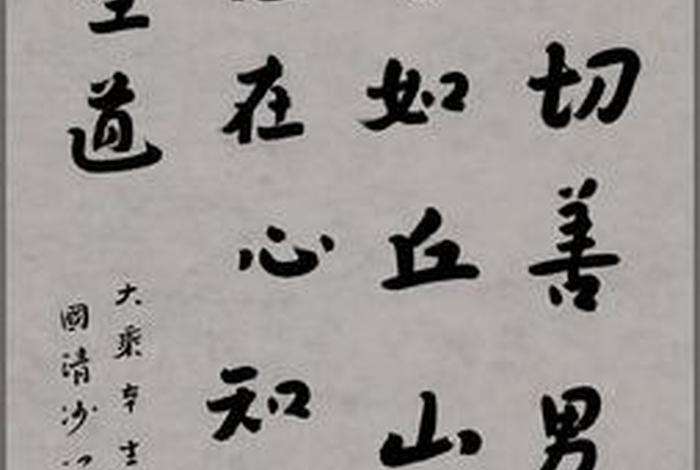 切善男
如丘山
在心知
道
大乘
國清沙